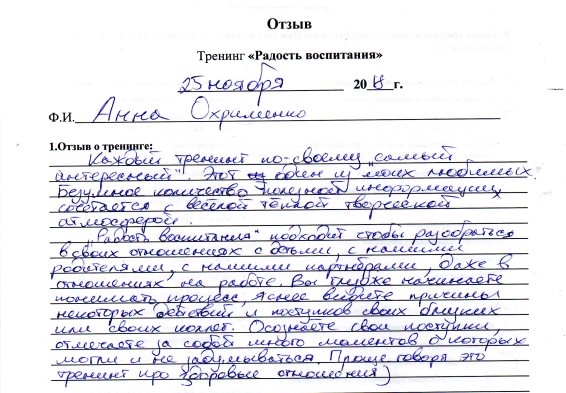 Отзыв
Тренинг «Радость воспитания»
25 ноября 2018 г.
Ф.И. Анна Охрименко
1.Отзыв о тренинге:
Каждый тренинг по-своему "самый
интересный". Этот один из моих любимых.
Безумное количество полезной информации
сочетается с весёлой тёплой творческой
атмосферой.
"Радость воспитания" подходит чтобы разобраться
в своих отношениях с детьми, с нашими
родителями, с нашими партнёрами, даже в
отношениях на работе. Вы глубже начинаете
понимать процесс, яснее видите причины
некоторых действий и поступков своих близких
или своих коллег. Осознаёте свои поступки,
отмечаете за собой много моментов о которых
могли и не задумываться. Проще говоря это
тренинг про здоровые отношения)